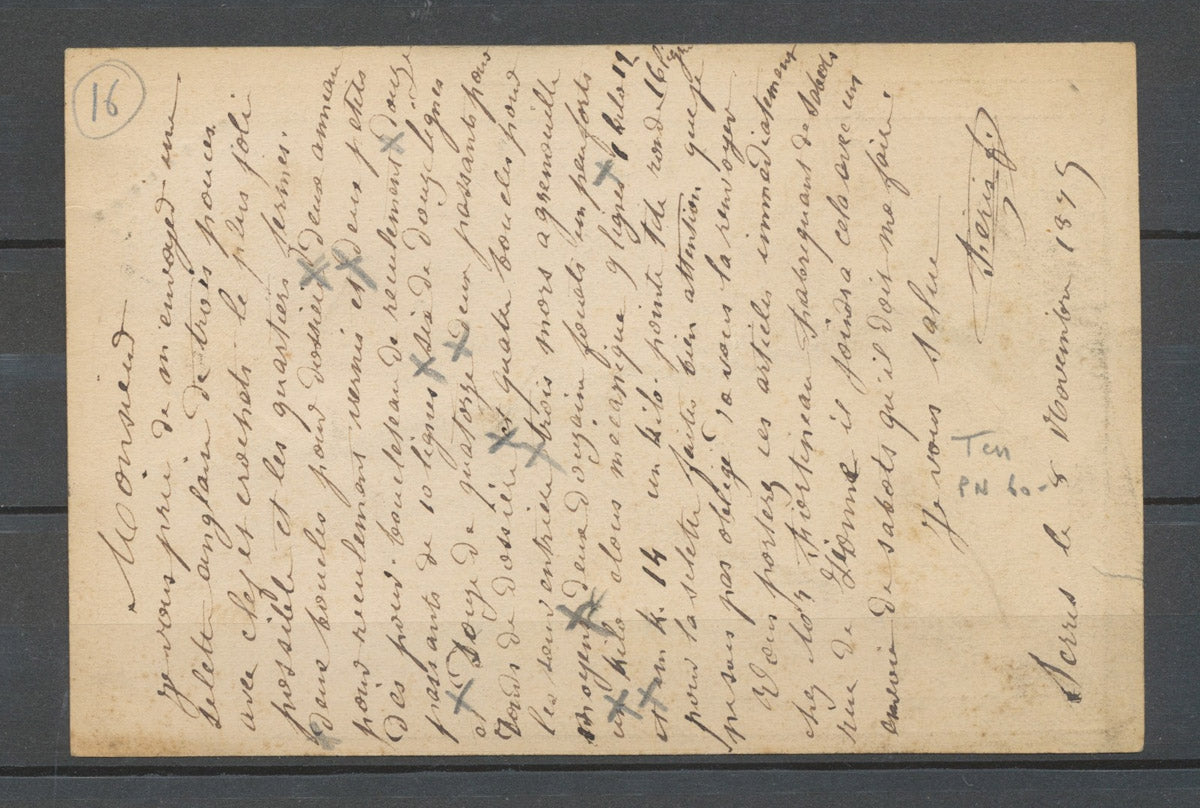 16
Monsieur
je vous prie de m'envoyer une
selette anglaise de trois pouces
avec clef et croisats le plus joli
possible et les quartiers fermes.
deux boucles pour dossier deux anneau
pour reculement vernis et deux petits
Das pour boucleteau de reculement douze
passants de 10 lignes six de douze lignes
et Douze de quatorze deux passants pour
de dossière et quatre boucles pour
les sous ventrière trois mors a grenouille
moyens deux dozaine fouets un peu forts
un kilo clous mecanique 9 lignes 1 kilo 12
et un k. 14 un kilo pointe tete ronde 16 lignes
pour la selette faites bien attention que je
ne sois pas obligé de vous la renvoyer
Vous porterez ces articles immediatement
chez fabriquant de sabots
rue de Lionne il joindra cela avec un
envoie de sabots qu'il dois me faire.
Je vous salue
Serres le 8 Novembre 1879
Tess
PN 60-